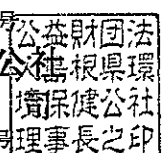 公益財団法
公社根県環
境保健公社
理事長之印